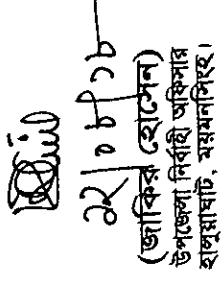 ১২/০৮/১৮
(জাকির হোসেন)
উপজেলা নির্বাহী অফিসার
হালুয়াঘাট, ময়মনসিংহ।